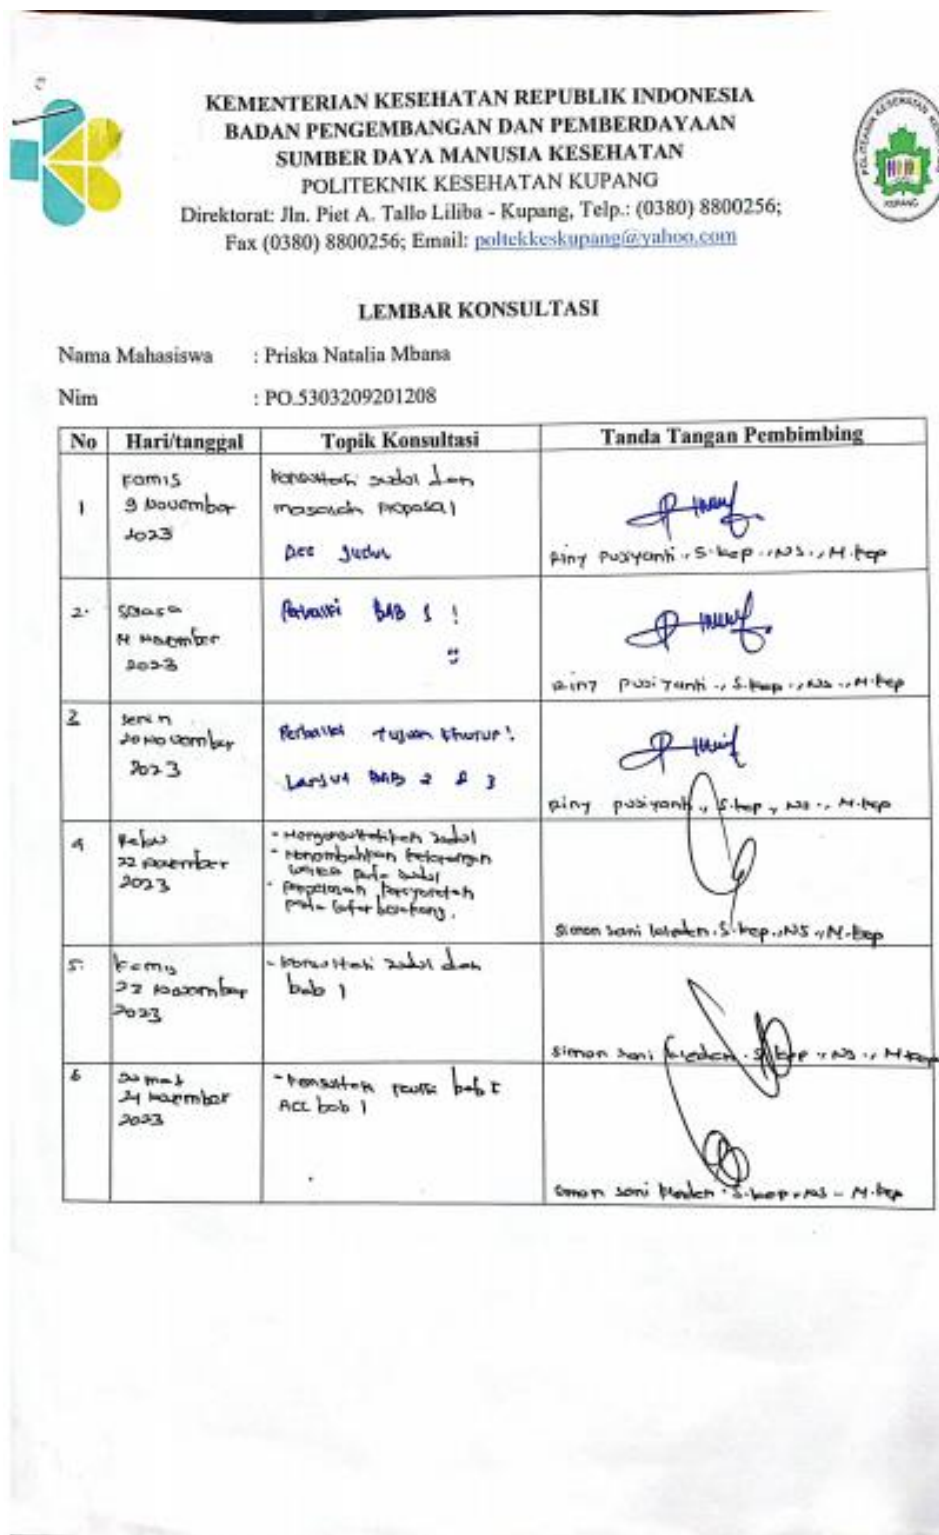 KEMENTERIAN KESEHATAN REPUBLIK INDONESIA
BADAN PENGEMBANGAN DAN PEMBERDAYAAN
SUMBER DAYA MANUSIA KESEHATAN
POLITEKNIK KESEHATAN KUPANG
Direktorat: Jln. Piet A. Tallo Liliba - Kupang, Telp.: (0380) 8800256;
Fax (0380) 8800256; Email: poltekkeskupang@yahoo.com
POLITEKNIK KESEHATAN
KUPANG
LEMBAR KONSULTASI
Nama Mahasiswa : Priska Natalia Mbana
Nim : PO.5303209201208
No Hari/tanggal Topik Konsultasi Tanda Tangan Pembimbing
1
Kamis
9 November
2023
Konsultasi judul dan
masalah proposal
Acc Judul
Riny Pusiyanti ., S.kep ., NS ., M.kep
2.
Selasa
November
2023
Perbaiki BAB 1 !
Riny Pusiyanti ., S.kep ., NS ., M.kep
3
Senin
20 November
2023
Perbaiki tujuan khusus!
Lanjut BAB 2 & 3
Riny Pusiyanti ., S.kep ., NS ., M.kep
4
Rabu
22 November
2023
- Mengonsultasikan judul
- Menambahkan
pada judul
-
pada latar belakang.
Simon Sani . S.kep ., NS ., M.kep
5.
Kamis
November
2023
- Konsultasi judul dan
bab 1
Simon Sani . S.kep ., NS ., M.kep
6
Jumat
24 November
2023
- Konsultasi bab 1
ACC bab 1
Simon Sani . S.kep ., NS . M.kep